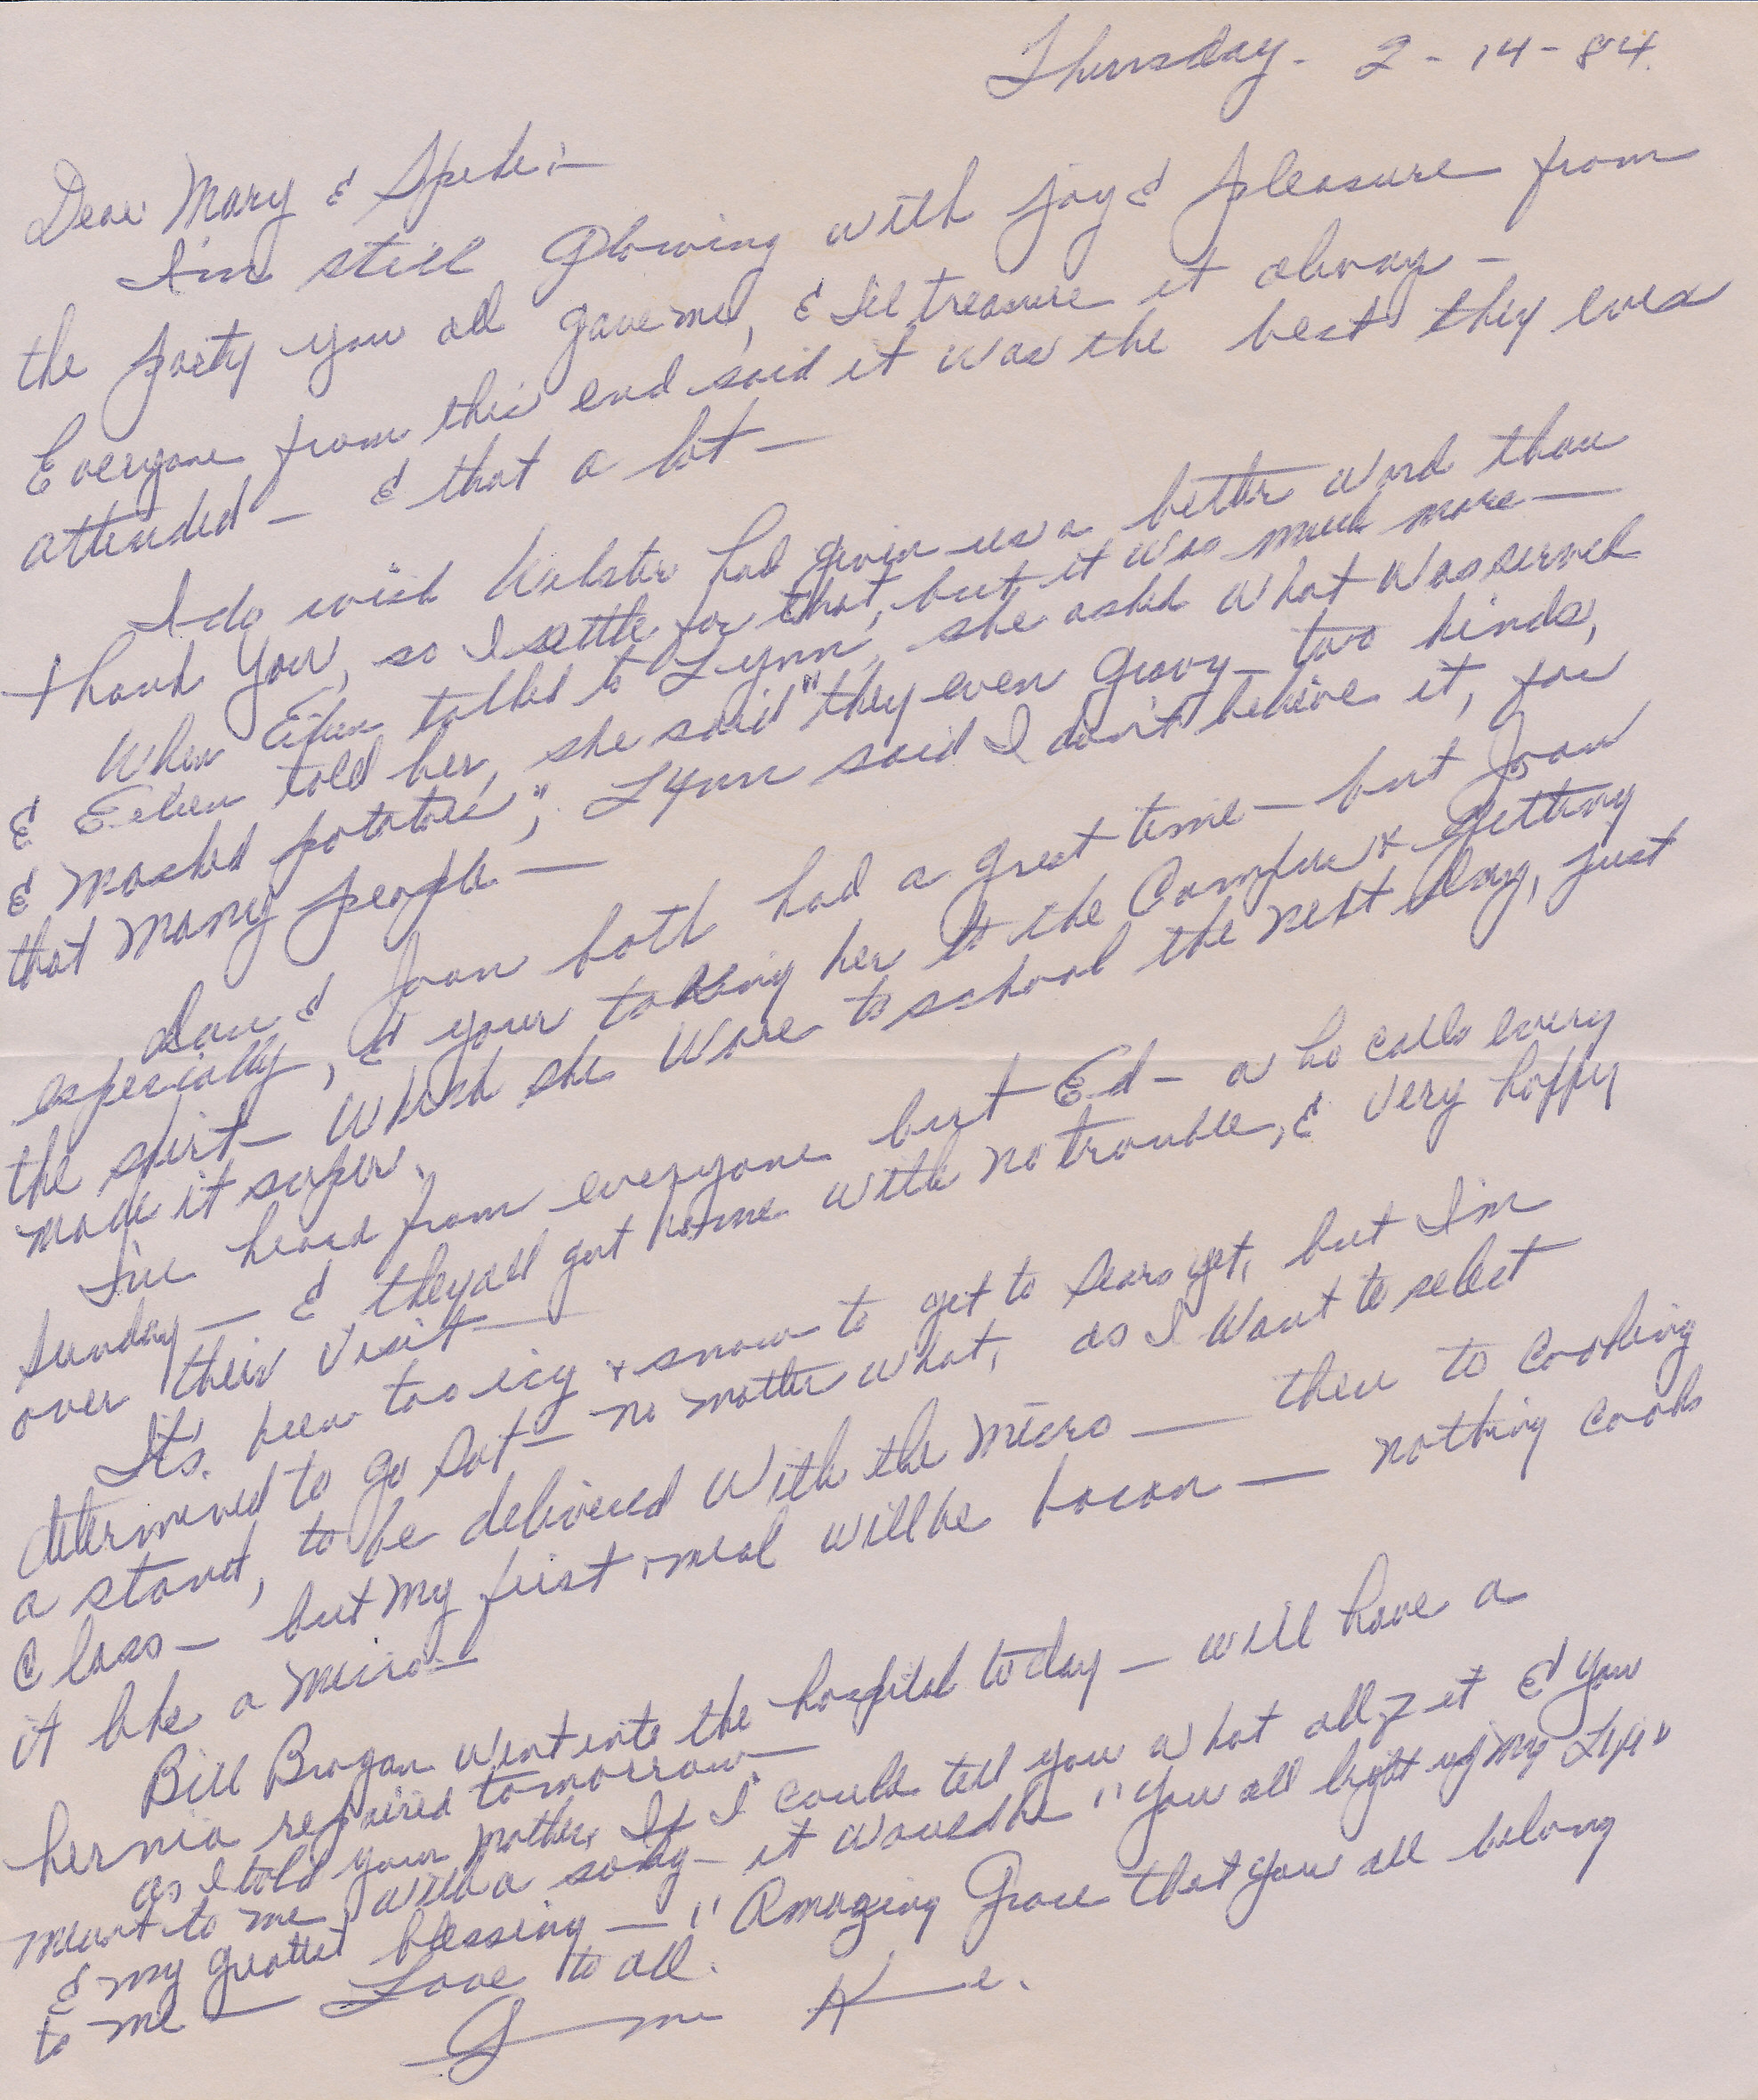 Thursday - 2 - 14 - 84.
Dear Mary & Spike:-
I'm still glowing with joy & pleasure from
the party you all gave me, & I'll treasure it alway -
Everyone from this end said it was the best they ever
attended - & that a lot -
I do wish Webster had given us a better word than
thank you, so I settle for that, but it was much more -
When Eileen talked to Lynn, she asked what was served
& Eileen told her, she said "they even gravy - two kinds,
& mashed potatoes", Lynn said I don't believe it, for
that many people -
Dan & Joan both had a great time - but Joan
especially, & your taking her to the Campus & getting
the shirt - which she wore to school the next day, just
made it super.
I've heard from everyone but Ed - who calls every
Sunday - & they all got home with no trouble, & very happy
over their visit -
It's been too icy & snow to get to Sears yet, but I'm
determined to go Sat - no matter what, as I want to select
a stand, to be delivered with the micro - then to cooking
class - but my first meal will be bacon - nothing cooks
it like a micro -
Bill Brogan went into the hospital today - will have a
hernia repaired tomorrow -
as I told your mother, If I could tell you what all it & you
meant to me, with a song - it would be "you all light up my Life"
& my greatest blessing - "Amazing Grace that you all belong
to me - Love to all.